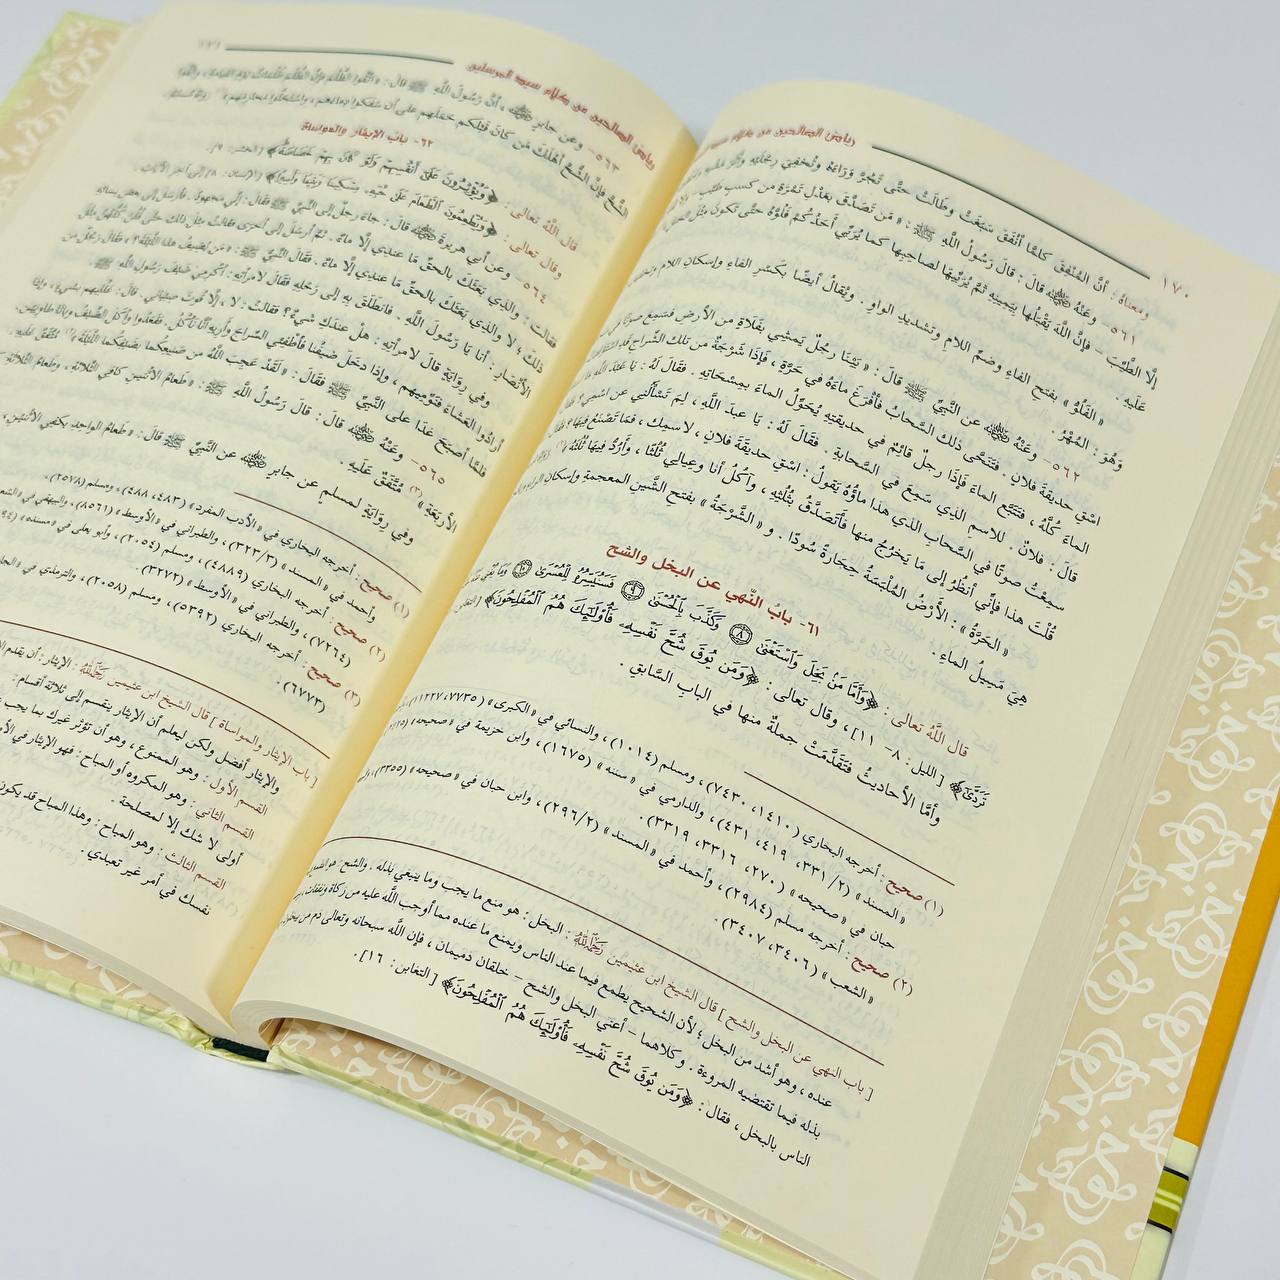 ١٧٠
رياض الصالحين من كلام سيد
ومعناهُ : أنَّ المُنْفِقَ كلمَّا أنْفَقَ سَبَغَتْ وطَالَتْ حتَّى تَجُرَّ وَرَاءَهُ وتُخفِيَ رِجلَيْهِ وأثَرَ
٥٦١- وعَنْهُ ﷺ قالَ : قالَ رَسُولُ اللَّهِ ﷺ : « مَنْ تَصدَّقَ بعَدْلِ تَمْرَةٍ مِن كَسبٍ طَيِّبٍ
إلَّا الطَّيِّبَ – فإنَّ اللَّهَ يَقْبَلُها بِيَمِينِهِ ثمَّ يُرَبِّيهَا لصاحِبِها كما يُرَبِّي أحَدُكُمْ فَلُوَّهُ حتَّى تَكونَ مِثْلَ
عَلَيهِ .
« الفَلُوُّ » بفتحِ الفاءِ وضمِّ اللامِ وتشديدِ الواوِ . ويُقالُ أيضًا بكَسْرِ الفاءِ وإسكانِ اللامِ
وهُوَ : المُهْرُ .
٥٦٢- وعَنْهُ عن النبيِّ ﷺ قالَ : « بَيْنَا رجُلٌ يَمشِي بفَلَاةٍ مِن الأرضِ فسَمِعَ صَوْتًا
اسْقِ حديقةَ فلانٍ . فتَنَحَّى ذلكَ السَّحابُ فأفْرَغَ ماءَهُ في حَرَّةٍ ، فإذَا شَرْجَةٌ من تلكَ الشِّراجِ
الماءَ كُلَّهُ ، فتَتَبَّعَ الماءَ فإذَا رجلٌ قائِمٌ في حديقتِهِ يُحَوِّلُ الماءَ بمِسْحاتِهِ . فقالَ لهُ : يَا عبدَ اللَّهِ
قالَ : فلانٌ . للاسمِ الذِي سَمِعَ في السَّحابَةِ . فقالَ لَهُ : يا عبدَ اللَّهِ ، لِمَ تَسْأَلُنِي عن اسْمِي
سمِعْتُ صوتًا في السَّحابِ الذِي هذا ماؤُهُ يَقولُ : اسْقِ حديقَةَ فلانٍ ، لاسمِك ، فمَا تَصْنَعُ فِيهَا
قُلْتَ هذا فإنِّي أنظُرُ إلى ما يَخرُجُ منها فأتَصَدَّقُ بثُلُثِهِ ، وآكلُ أنا وعِيالي ثُلُثًا ، وأَرُدُّ فِيهَا ثُلُثَهُ »
« الحَرَّةُ » : الأرْضُ المُلْبَسَةُ حِجَارَةً سُودًا . و « الشَّرْجَةُ » بفتحِ الشِّينِ المعجمةِ وإسكانِ الراءِ
هِيَ مَسِيلُ الماءِ .
٦١- بابُ النَّهي عن البخل والشح
قالَ اللَّهُ تعالى : ﴿ وَأَمَّا مَنْ بَخِلَ وَٱسْتَغْنَىٰ ۝٨ وَكَذَّبَ بِٱلْحُسْنَىٰ ۝٩ فَسَنُيَسِّرُهُۥ لِلْعُسْرَىٰ ۝١٠ وَمَا يُغْنِي عَنْهُ
تَرَدَّىٰٓ ﴾ [ الليل : ٨- ١١] ، وقال تعالى : ﴿ وَمَن يُوقَ شُحَّ نَفْسِهِۦ فَأُو۟لَـٰٓئِكَ هُمُ ٱلْمُفْلِحُونَ ﴾
وأمَّا الأحاديثُ فتَقَدَّمَتْ جملةٌ منها في البابِ السَّابقِ .
(١) صحيح : أخرجه البخاري (١٤١٠، ٧٤٣٠) ، ومسلم (١٠١٤) ، والنسائي في « الكبرى » (٧٧٣٥، ١١٢٢٧)
« المسند » (٣٣١/٢، ٤١٩، ٤٣١) ، والدارمي في « سننه » (١٦٧٥) ، وابن خزيمة في « صحيحه »
حبان في « صحيحه » (٢٧٠، ٣٣١٦، ٣٣١٩).
(٢) صحيح : أخرجه مسلم (٢٩٨٤) ، وأحمد في « المسند » (٢٩٦/٢) ، وابن حبان في « صحيحه » (٣٣٥٥)
« الشعب » (٣٤٠٦، ٣٤٠٧).
[ باب النهي عن البخل والشح ] قال الشيخ ابن عثيمين رَحِمَهُ اللَّهُ : البخل : هو منع ما يجب وما ينبغي بذله . والشح :
عنده ، وهو أشد من البخل ؛ لأن الشحيح يطمع فيما عند الناس ويمنع ما عنده مما أوجب اللَّه عليه من زكاة ونفقات
بذله فيما تقتضيه المروءة . وكلاهما – أعني البخل والشح – خلقان ذميمان ، فإن اللَّه سبحانه وتعالى ذم من
الناس بالبخل ، فقال : ﴿ وَمَن يُوقَ شُحَّ نَفْسِهِۦ فَأُو۟لَـٰٓئِكَ هُمُ ٱلْمُفْلِحُونَ ﴾ [ التغابن : ١٦].
رياض الصالحين من كلام سيد المرسلين
١٧١
٥٦٣- وعن جابرٍ ، أنَّ رَسُولَ اللَّهِ ﷺ قالَ : « اتَّقُوا الظُّلْمَ فإنَّ الظُّلْمَ ظُلُمَاتٌ يَومَ القِيَامَةِ ، واتَّقُوا
الشُّحَّ فإنَّ الشُّحَّ أهْلَكَ مَنْ كانَ قَبْلَكم حمَلَهم على أن سَفَكوا دِماءَهم ، واسْتَحَلُّوا مَحارِمَهم »
٦٢- بابُ الإيثار والمواساة
قالَ اللَّهُ تعالى : ﴿ وَيُؤْثِرُونَ عَلَىٰٓ أَنفُسِهِمْ وَلَوْ كَانَ بِهِمْ خَصَاصَةٌ ﴾ [ الحشر : ٩].
وقال تعالى : ﴿ وَيُطْعِمُونَ ٱلطَّعَامَ عَلَىٰ حُبِّهِۦ مِسْكِينًا وَيَتِيمًا وَأَسِيرًا ﴾ [ الإنسان : ٨] إلى آخر الآيات .
٥٦٤- وعن أبي هريرةَ قالَ : جاءَ رجلٌ إلى النَّبيِّ ﷺ فقالَ : إنِّي مجهودٌ . فأرسلَ إلى بعضِ نسائِهِ
فقالت : والذِي بَعَثَكَ بالحقِّ مَا عندِي إلَّا ماءٌ . ثمَّ أرسَلَ إلى أخرى فقالتْ مثلَ ذلكَ حتى قُلْنَ كُلُّهُنَّ مثلَ
ذلكَ : لا والذي بَعَثَكَ بالحقِّ مَا عندِي إلَّا ماءٌ . فقالَ النَّبيُّ ﷺ : « مَن يُضيفُ هذا اللَّيْلَةَ ؟ » فقالَ رَجُلٌ من
الأنْصَارِ : أنا يَا رَسُولَ اللَّهِ . فانطَلَقَ بِهِ إلى رَحْلِهِ فقالَ لامرأتِهِ : أكْرِمِي ضَيْفَ رَسُولِ اللَّهِ ﷺ.
وفي رِوايَةٍ قالَ لامرأتِهِ : هلْ عندَكِ شيءٌ ؟ فقالَتْ : لا ، إلَّا قُوتَ صِبْيَانِي . قالَ : عَلِّلِيهم بشيءٍ ، وإذا
أرادُوا العَشَاءَ فنَوِّمِيهم ، وإذا دخَلَ ضيفُنا فأَطْفِئِي السِّراجَ وأَرِيهِ أنَّا نَأكُلُ . فقَعَدُوا وأكَلَ الضَّيفُ وباتَا طاوِيَيْنِ.
فلمَّا أصبَحَ غَدَا على النَّبيِّ ﷺ فقالَ : « لَقَدْ عَجِبَ اللَّهُ مِن صَنِيعِكُما بِضَيْفِكُما اللَّيْلَةَ » مُتَّفَقٌ عَلَيهِ .
٥٦٥- وعَنْهُ قالَ : قالَ رَسُولُ اللَّهِ ﷺ : « طَعامُ الاثْنَيْنِ كافي الثَّلاثَةِ ، وطَعامُ الثَّلاثَةِ
الأربَعَةِ » (٣) مُتَّفَقٌ عَلَيهِ .
وفي رِوايَةٍ لمسلمٍ عن جابرٍ عن النَّبيِّ ﷺ قالَ : « طَعامُ الواحِدِ يكفي الاثْنَيْنِ ،
(١) صحيح : أخرجه البخاري في « الأدب المفرد » (٤٨٣، ٤٨٨) ، ومسلم (٢٥٧٨).
وأحمد في « المسند » (٣٢٣/٣) ، والطبراني في « الأوسط » (٨٥٦١) ، والبيهقي في
(٢) صحيح : أخرجه البخاري (٤٨٨٩) ، ومسلم (٢٠٥٤) ، وأبو يعلى في « مسنده »
(٧٢٦٤) ، والطبراني في « الأوسط » (٣٢٧٢).
(٣) صحيح : أخرجه البخاري (٥٣٩٢) ، ومسلم (٢٠٥٨) ، والترمذي في
(٦٧٧٣).
[ باب الإيثار والمواساة ] قال الشيخ ابن عثيمين رَحِمَهُ اللَّهُ : الإيثار : أن يقدم
والإيثار أفضل ولكن ليعلم أن الإيثار ينقسم إلى ثلاثة أقسام :
القسم الأول : وهو الممنوع ، وهو أن تؤثر غيرك بما يجب
القسم الثاني : وهو المكروه أو المباح : فهو الإيثار في
أولى لا شك إلا لمصلحة .
القسم الثالث : وهو المباح : وهذا المباح قد يكون
نفسك في أمر غير تعبدي .